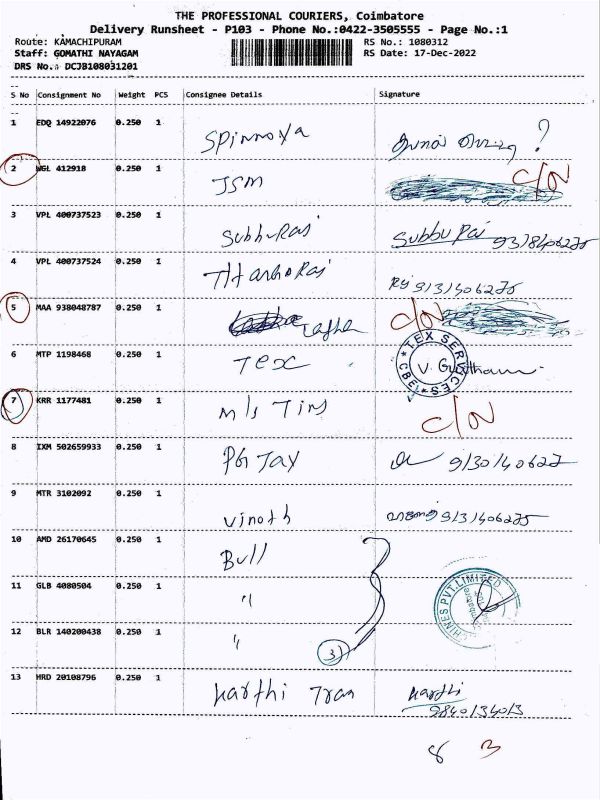 THE PROFESSIONAL COURIERS, Coimbatore
Delivery Runsheet - P103 - Phone No.:0422-3505555 - Page No.:1
Route: KAMACHIPURAM RS No.: 1080312
Staff: GOMATHI NAYAGAM RS Date: 17-Dec-2022
DRS No.: DCJB108031201
S No Consignment No Weight PCS Consignee Details Signature
1 EDQ 14922076 0.250 1 ?
2 WGL 412918 0.250 1 JSM C/N
3 VPL 400737523 0.250 1 Subhu Raj Subbu Raj
4 VPL 400737524 0.250 1
5 MAA 938048787 0.250 1 C/N
TEX SERVICES CBE
6 MTP 1198468 0.250 1 Tex
7 KRR 1177481 0.250 1 M/s Tims C/N
8 IXM 502659933 0.250 1 PG Jay
9 MTR 3102092 0.250 1 Vinoth
10 AMD 26170645 0.250 1 Bull
11 GLB 4080504 0.250 1 "
CHINES PVT.LIMITED
12 BLR 140200438 0.250 1 " 3
13 HRD 20108796 0.250 1 Karthi Tran Karthi
8 3